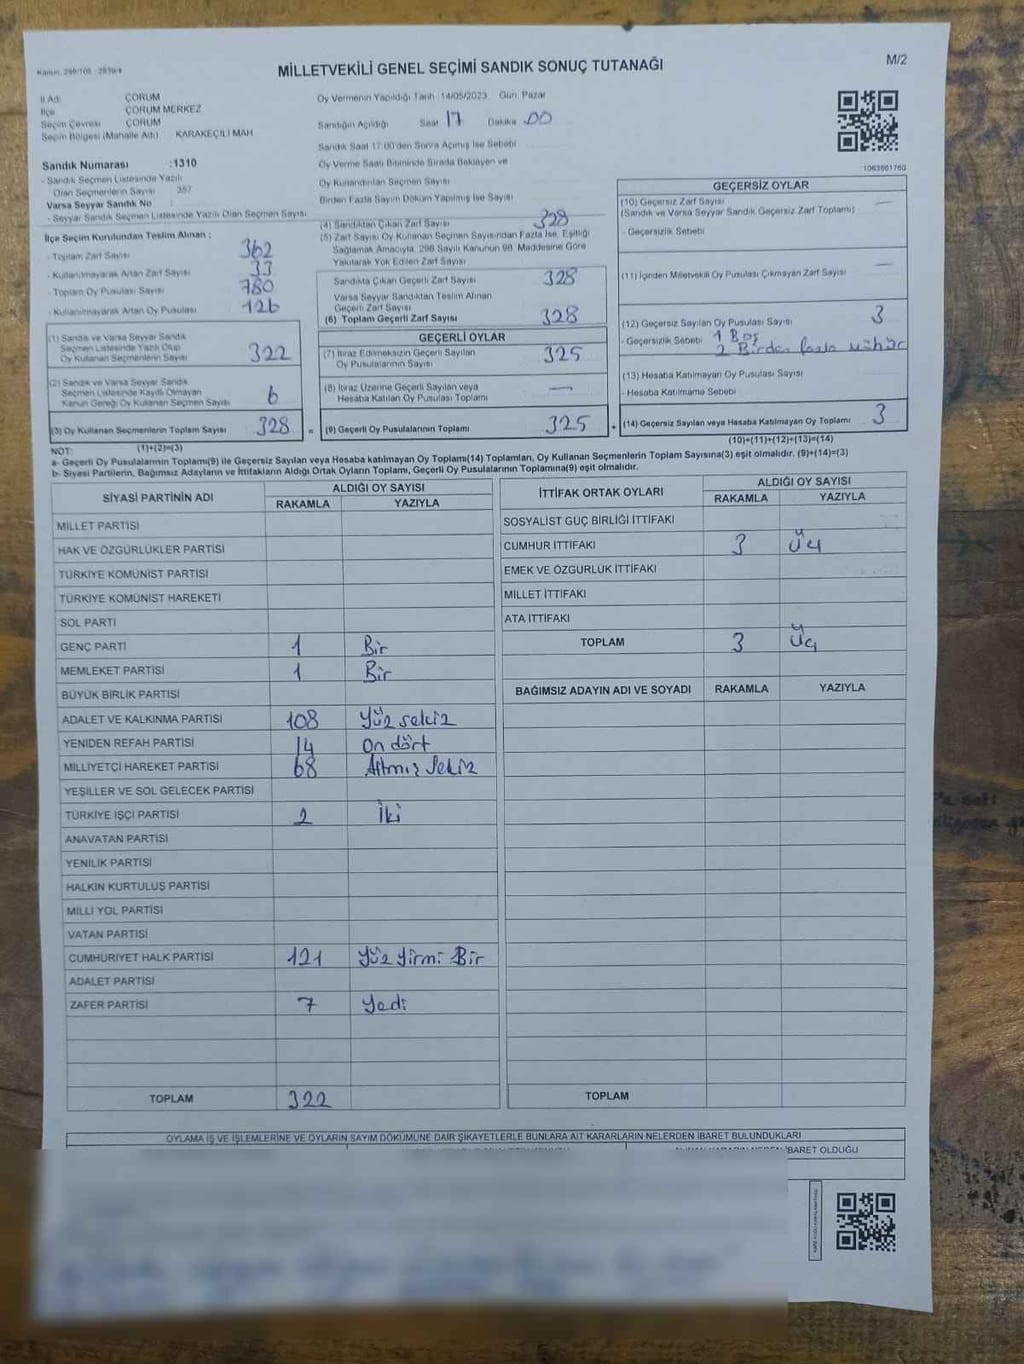 Kanun: 298/105 2839/4
MİLLETVEKİLİ GENEL SEÇİMİ SANDIK SONUÇ TUTANAĞI
M/2
İl Adı ÇORUM
İlçe ÇORUM MERKEZ
Seçim Çevresi ÇORUM
Seçim Bölgesi (Mahalle Adı) KARAKEÇİLİ MAH
Oy Vermenin Yapıldığı Tarih 14/05/2023 Gün: Pazar
Sandığın Açıldığı Saat 17 Dakika 00
Sandık Saat 17.00'den Sonra Açılmış İse Sebebi
Oy Verme Saati Bitiminde Sırada Bekleyen ve
Oy Kullandırılan Seçmen Sayısı
Birden Fazla Sayım Döküm Yapılmış İse Sayısı
1063661760
Sandık Numarası :1310
- Sandık Seçmen Listesinde Yazılı
Olan Seçmenlerin Sayısı : 357
Varsa Seyyar Sandık No :
- Seyyar Sandık Seçmen Listesinde Yazılı Olan Seçmen Sayısı
İlçe Seçim Kurulundan Teslim Alınan ;
- Toplam Zarf Sayısı 362
- Kullanılmayarak Artan Zarf Sayısı 33
- Toplam Oy Pusulası Sayısı 780
- Kullanılmayarak Artan Oy Pusulası 126
(1) Sandık ve Varsa Seyyar Sandık
Seçmen Listesinde Yazılı Olup
Oy Kullanan Seçmenlerin Sayısı 322
(2) Sandık ve Varsa Seyyar Sandık
Seçmen Listesinde Kayıtlı Olmayan
Kanun Gereği Oy Kullanan Seçmen Sayısı 6
(3) Oy Kullanan Seçmenlerin Toplam Sayısı 328 =
(1)+(2)=(3)
(4) Sandıktan Çıkan Zarf Sayısı 328
(5) Zarf Sayısı Oy Kullanan Seçmen Sayısından Fazla İse, Eşitliği
Sağlamak Amacıyla, 298 Sayılı Kanunun 98. Maddesine Göre
Yakılarak Yok Edilen Zarf Sayısı
Sandıkta Çıkan Geçerli Zarf Sayısı 328
Varsa Seyyar Sandıktan Teslim Alınan
Geçerli Zarf Sayısı
(6) Toplam Geçerli Zarf Sayısı 328
GEÇERLİ OYLAR
(7) İtiraz Edilmeksizin Geçerli Sayılan
Oy Pusulalarının Sayısı 325
(8) İtiraz Üzerine Geçerli Sayılan veya
Hesaba Katılan Oy Pusulası Toplamı —
(9) Geçerli Oy Pusulalarının Toplamı 325 +
GEÇERSİZ OYLAR
(10) Geçersiz Zarf Sayısı —
(Sandık ve Varsa Seyyar Sandık Geçersiz Zarf Toplamı)
- Geçersizlik Sebebi
(11) İçinden Milletvekili Oy Pusulası Çıkmayan Zarf Sayısı —
(12) Geçersiz Sayılan Oy Pusulası Sayısı 3
- Geçersizlik Sebebi 1 Boş
2 Birden fazla mühür
(13) Hesaba Katılmayan Oy Pusulası Sayısı
- Hesaba Katılmama Sebebi
(14) Geçersiz Sayılan veya Hesaba Katılmayan Oy Toplamı 3
(10)+(11)+(12)+(13)=(14)
NOT:
a- Geçerli Oy Pusulalarının Toplamı(9) ile Geçersiz Sayılan veya Hesaba katılmayan Oy Toplamı(14) Toplamları, Oy Kullanan Seçmenlerin Toplam Sayısına(3) eşit olmalıdır. (9)+(14)=(3)
b- Siyasi Partilerin, Bağımsız Adayların ve İttifakların Aldığı Ortak Oyların Toplamı, Geçerli Oy Pusulalarının Toplamına(9) eşit olmalıdır.
SİYASİ PARTİNİN ADI ALDIĞI OY SAYISI
RAKAMLA YAZIYLA
MİLLET PARTİSİ
HAK VE ÖZGÜRLÜKLER PARTİSİ
TÜRKİYE KOMÜNİST PARTİSİ
TÜRKİYE KOMÜNİST HAREKETİ
SOL PARTİ
GENÇ PARTİ 1 Bir
MEMLEKET PARTİSİ 1 Bir
BÜYÜK BİRLİK PARTİSİ
ADALET VE KALKINMA PARTİSİ 108 Yüz sekiz
YENİDEN REFAH PARTİSİ 14 On dört
MİLLİYETÇİ HAREKET PARTİSİ 68 Altmış Sekiz
YEŞİLLER VE SOL GELECEK PARTİSİ
TÜRKİYE İŞÇİ PARTİSİ 2 İki
ANAVATAN PARTİSİ
YENİLİK PARTİSİ
HALKIN KURTULUŞ PARTİSİ
MİLLİ YOL PARTİSİ
VATAN PARTİSİ
CUMHURİYET HALK PARTİSİ 121 Yüz Yirmi Bir
ADALET PARTİSİ
ZAFER PARTİSİ 7 Yedi
TOPLAM 322
İTTİFAK ORTAK OYLARI ALDIĞI OY SAYISI
RAKAMLA YAZIYLA
SOSYALİST GÜÇ BİRLİĞİ İTTİFAKI
CUMHUR İTTİFAKI 3 Üç
EMEK VE ÖZGÜRLÜK İTTİFAKI
MİLLET İTTİFAKI
ATA İTTİFAKI
TOPLAM 3 Üç
BAĞIMSIZ ADAYIN ADI VE SOYADI RAKAMLA YAZIYLA
TOPLAM
OYLAMA İŞ VE İŞLEMLERİNE VE OYLARIN SAYIM DÖKÜMÜNE DAİR ŞİKAYETLERLE BUNLARA AİT KARARLARIN NELERDEN İBARET BULUNDUKLARI
İBARET OLDUĞU